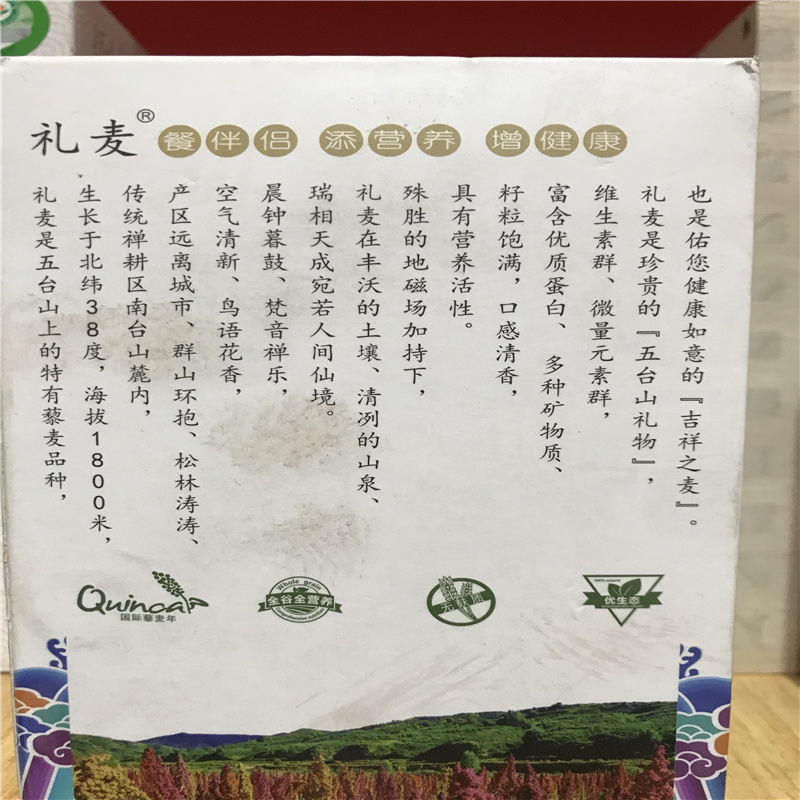 礼麦® 餐伴侣 添营养 增健康
礼麦是五台山上的特有藜麦品种，
生长于北纬38度，海拔1800米，
传统禅耕区南台山麓内，
产区远离城市、群山环抱、松林涛涛、
空气清新、鸟语花香，
晨钟暮鼓、梵音禅乐，
瑞相天成宛若人间仙境。
礼麦在丰沃的土壤、清冽的山泉、
殊胜的地磁场加持下，
具有营养活性。
籽粒饱满，口感清香，
富含优质蛋白、多种矿物质、
维生素群、微量元素群，
礼麦是珍贵的『五台山礼物』，
也是佑您健康如意的『吉祥之麦』。
Quinoa
国际藜麦年
Whole grain
全谷全营养
100% natural
优生态